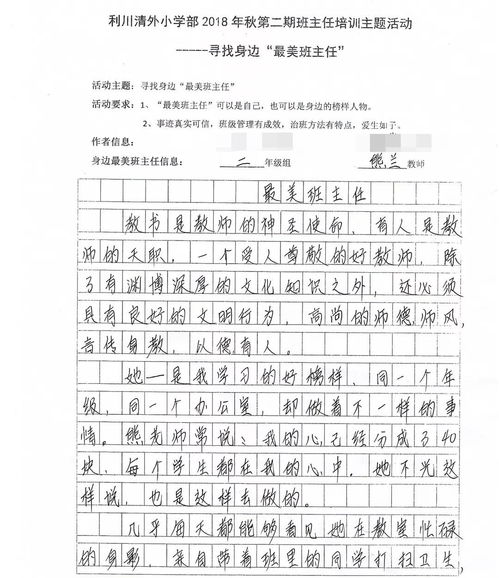 利川清外小学部 2018 年秋第二期班主任培训主题活动
-----寻找身边“最美班主任”
活动主题：寻找身边“最美班主任”
活动要求：1、“最美班主任”可以是自己，也可以是身边的榜样人物。
2、事迹真实可信，班级管理有成效，治班方法有特点，爱生如子。
作者信息：
身边最美班主任信息： 二 年级组 熊兰 教师
最美班主任
教书是教师的神圣使命，育人是教
师的天职，一个受人尊敬的好教师，除
了有渊博深厚的文化知识之外，还必须
具有良好的文明行为，高尚的师德师风，
言传身教，以德育人。
她一是我学习的好榜样，同一个年
级，同一个办公室，却做着不一样的事
情。熊老师常说：我的心已经分成了40
块，每个学生都在我的心中。她不光这
样说，也是这样去做的。
几乎每天都能够看见她在教室忙碌
的身影，亲自带着班里的同学打扫卫生，